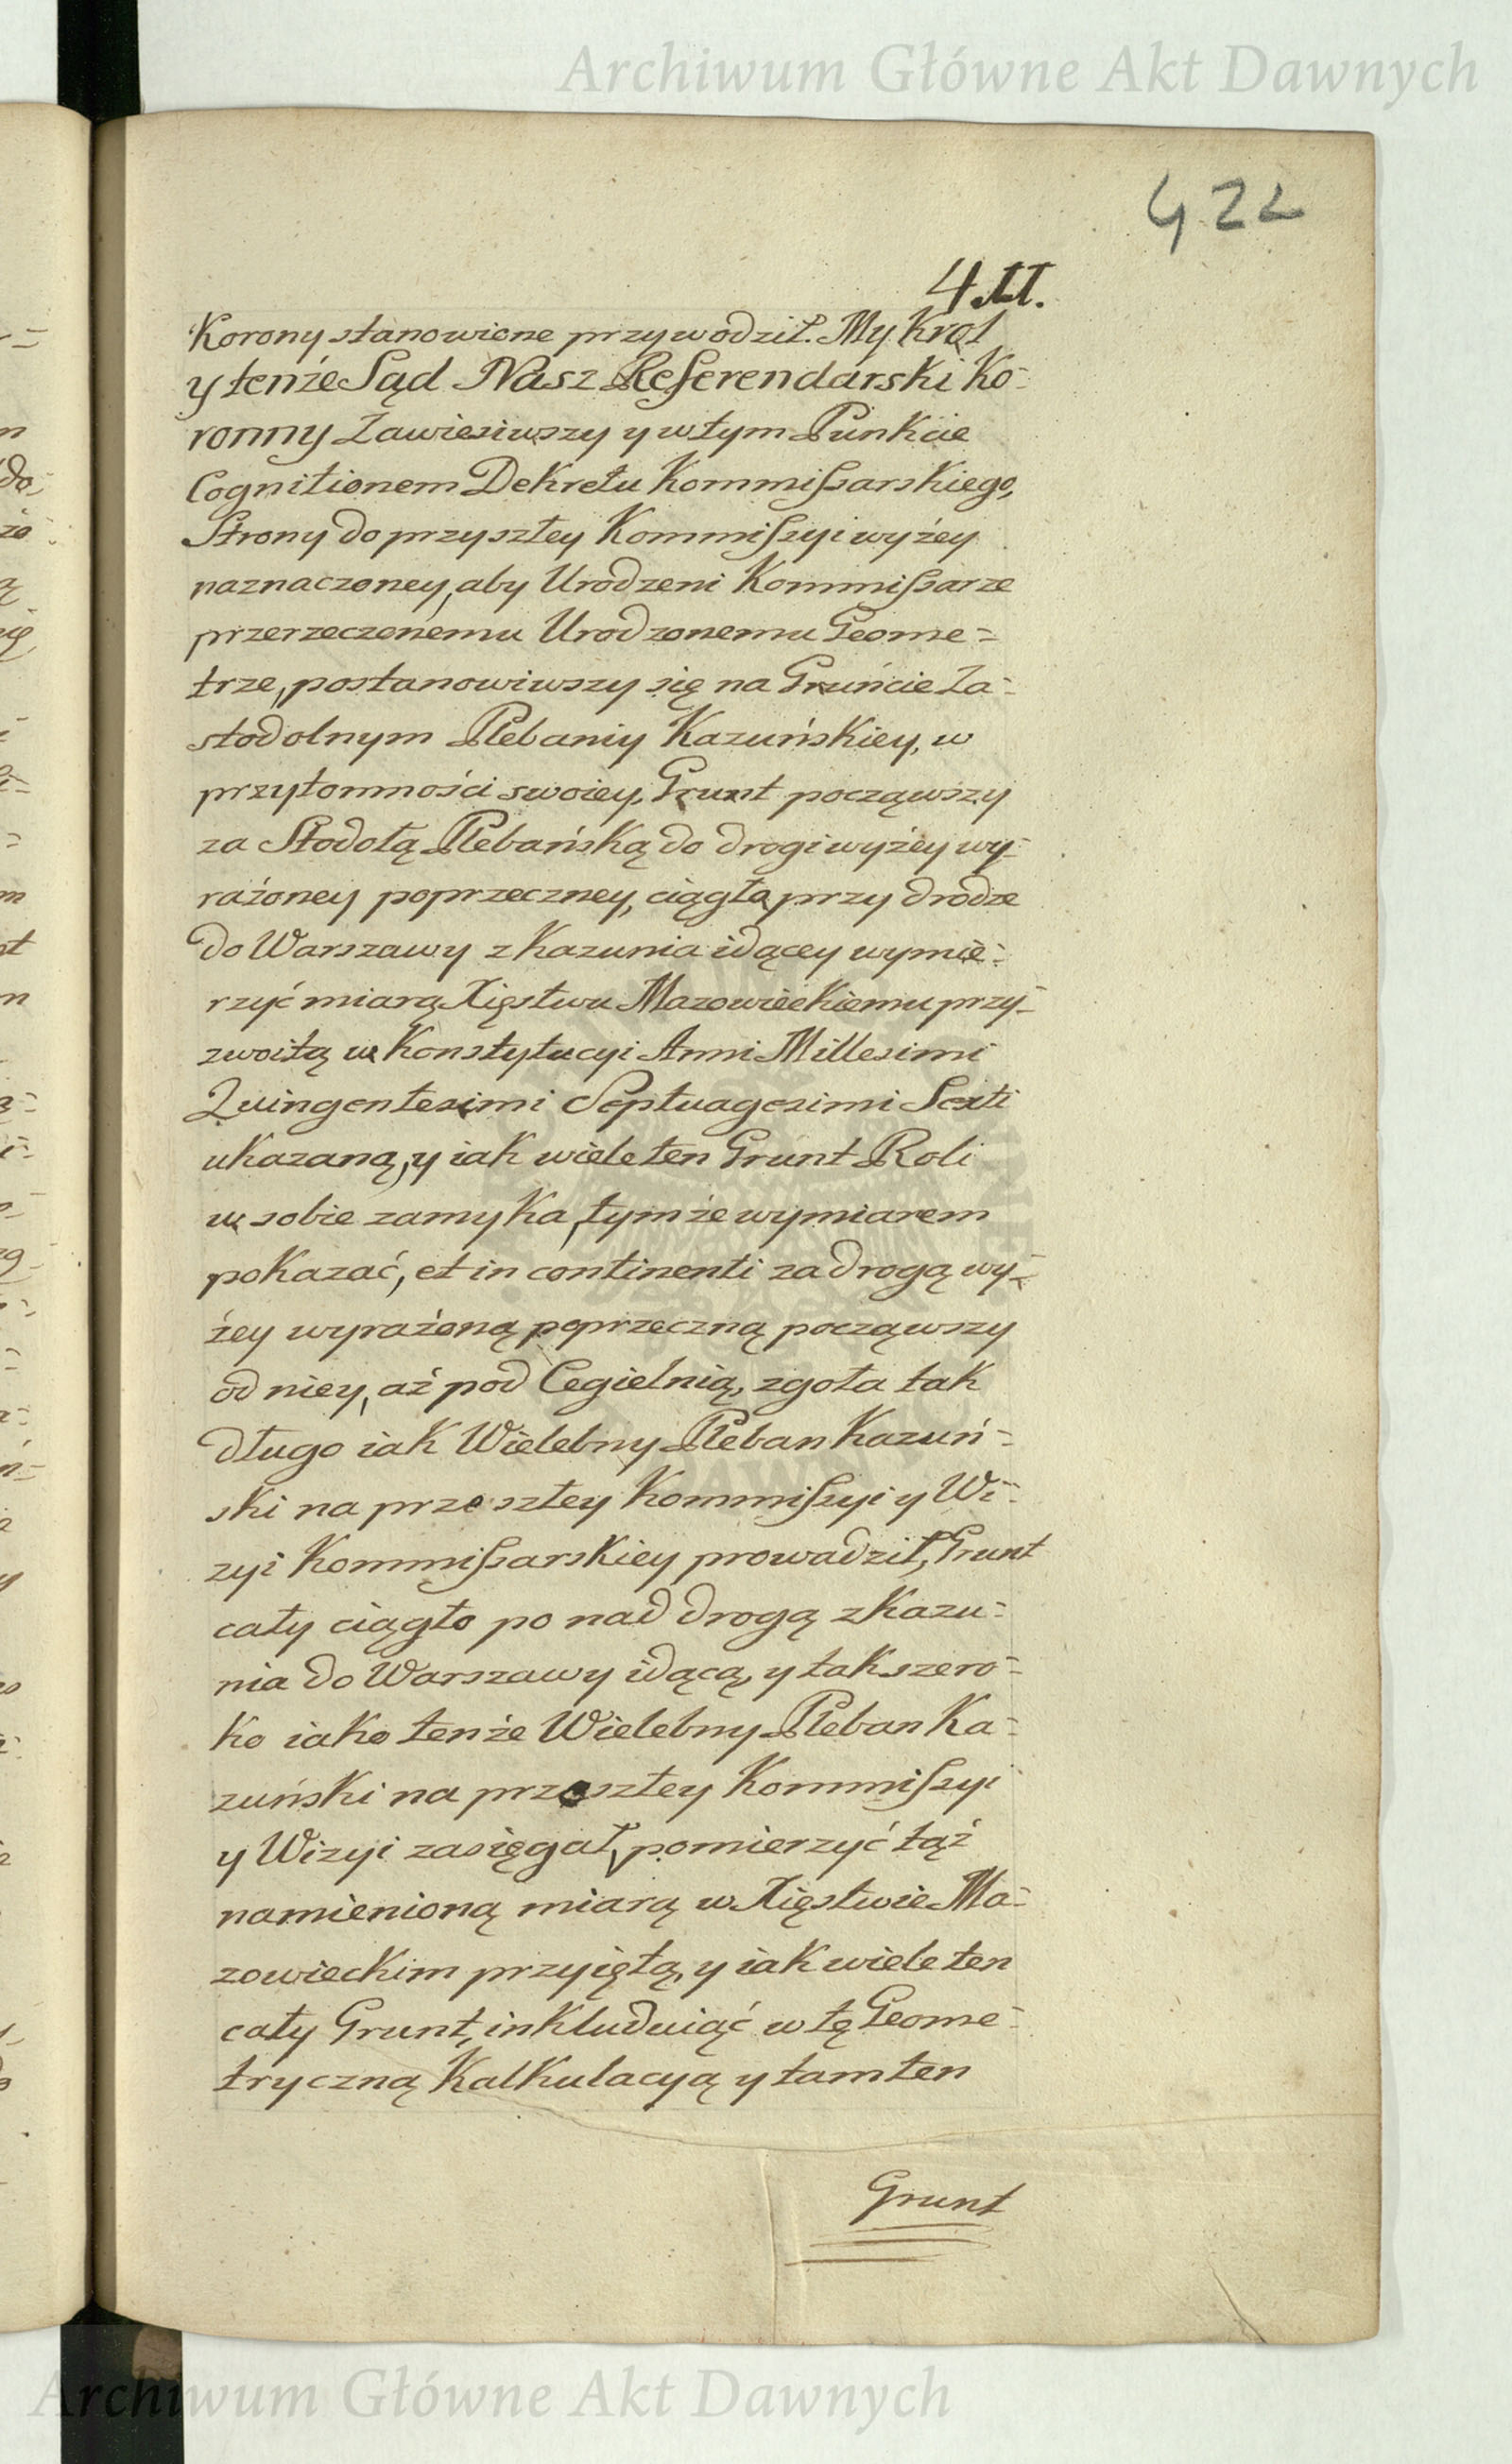 Archiwum Główne Akt Dawnych
422
Korony stanowione przywodził. My Krol
y tenże Sąd Nasz Referendarski Ko-
ronny Zawiesiwszy y w tym Punkcie
Cognitionem Dekretu Kommissarskiego,
Strony do przyszłey Kommissyi wyżey
naznaczoney, aby Urodzeni Kommissarze
przerzeczonemu Urodzonemu Geome=
trze, postanowiwszy się na Gruńcie Za-
stodolnym Plebaniy Kazuńskiey, w
przytomności swoiey, Grunt począwszy
za Stodołą Plebańską do drogi wyżey wy-
rażoney poprzeczney, ciągła przy drodze
do Warszawy z Kazunia idącey wymie-
rzyć miarą Xięstwu Mazowieckiemu przy-
zwoitą w Konstytucyi Anni Millesimi
Quingentesimi Septuagesimi Sexti
ukazaną, y iak wiele ten Grunt Roli
w sobie zamyka, tymże wymiarem
pokazać, et in continenti za drogą wy-
żey wyrażoną poprzeczną począwszy
od niey, aż pod Cegielnią, zgoła tak
długo iak Wielebny Pleban Kazuń-
ski na przeszłey Kommissyi y Wi-
zyi Kommissarskiey prowadził, Grunt
cały ciągło po nad drogą z Kazu-
nia do Warszawy idącą, y tak szero-
ko iako tenże Wielebny Pleban Ka-
zuński na przeszłey Kommissyi
y Wizyi zasięgał, pomierzyć tąż
namienioną miarą w Xięstwie Ma-
zowieckim przyiętą, y iak wiele ten
cały Grunt, inkluduiąć w tę Geome-
tryczną Kalkulacyą y tamten
Grunt
Archiwum Główne Akt Dawnych